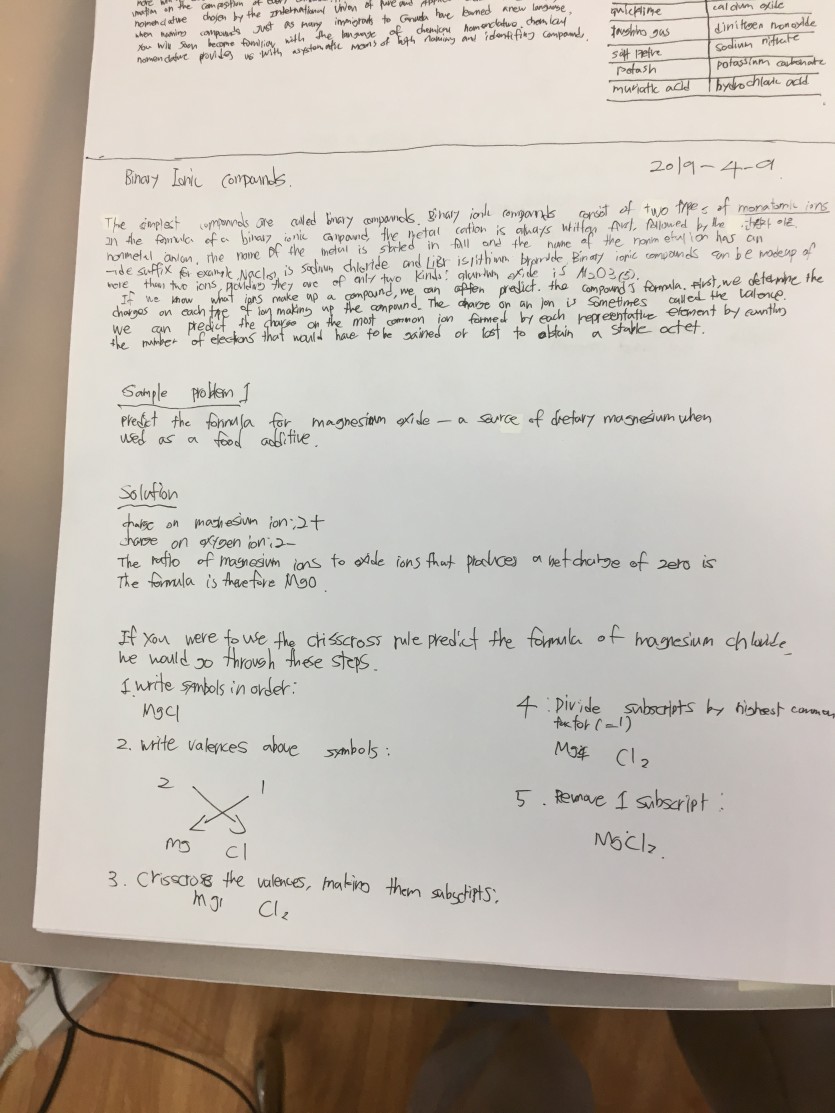 more
nomenclature chosen by the International Union of Pure and Applied
when naming compounds just as many immigrants to Canada have learned a new language,
You will soon become familiar with the language of chemical nomenclature. chemical
nomenclature provides us with a systematic means of both naming and identifying compounds.
quicklime calcium oxide
laughing gas dinitrogen monoxide
salt petre sodium nitrate
potash potassium carbonate
muriatic acid hydrochloric acid
2019-4-9
Binary Ionic Compounds.
The simplest compounds are called binary compounds. Binary ionic compounds consist of two types of monatomic ions
In the formula of a binary ionic compound, the metal cation is always written first, followed by the
nonmetal anion. The name of the metal is stated in full and the name of the nonmetal ion has an
-ide suffix for example, NaCl(s), is sodium chloride and LiBr is lithium bromide Binary ionic compounds can be made up of
more than two ions, providing they are of only two kinds: aluminum oxide is Al2O3(s).
If we know what ions make up a compound, we can often predict. the compound's formula. First, we determine the
charges on each type of ion making up the compound. The charge on an ion is sometimes called the valence.
we can predict the charge on the most common ion formed by each representative element by counting
the number of electrons that would have to be gained or lost to obtain a stable octet.
Sample problem 1
Predict the formula for magnesium oxide — a source of dietary magnesium when
used as a food additive.
Solution
charge on magnesium ion: 2+
charge on oxygen ion: 2-
The ratio of magnesium ions to oxide ions that produces a net charge of zero is
The formula is therefore MgO.
If you were to use the crisscross rule predict the formula of magnesium chloride,
we would go through these steps.
1. write symbols in order:
MgCl
2. write valences above symbols:
2 1
Mg Cl
3. Crisscross the valences, making them subscripts:
Mg1 Cl2
4. Divide subscripts by highest common
factor (=1)
Mg1 Cl2
5. Remove 1 subscript:
MgCl2.